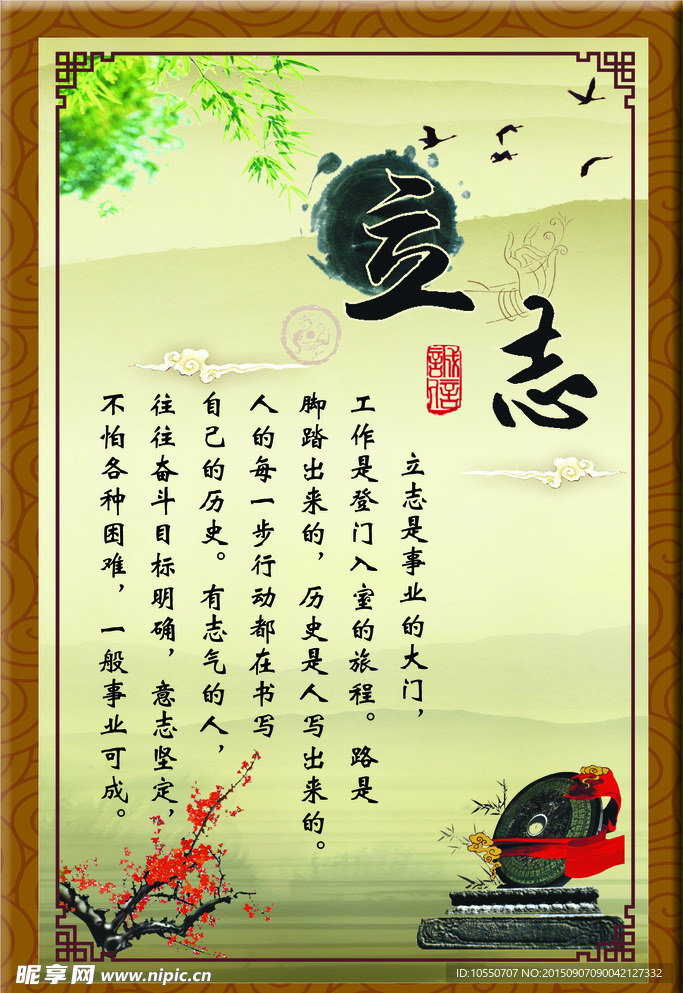 立志
誠信
立志是事业的大门，
工作是登门入室的旅程。路是
脚踏出来的，历史是人写出来的。
人的每一步行动都在书写
自己的历史。有志气的人，
往往奋斗目标明确，意志坚定，
不怕各种困难，一般事业可成。
昵享网 www.nipic.cn
ID:10550707 NO:20150907090042127332